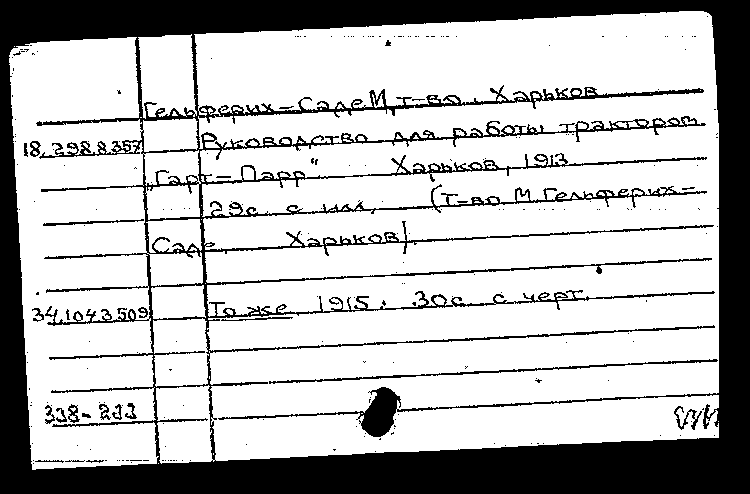 Гельферих-Саде М, т-во. Харьков
18.298.8.357 Руководство для работы трактором
„Гарт-Парр" Харьков, 1913
29с. с илл. (Т-во М. Гельферих-
Саде. Харьков).
34.1043.509 То же 1915. 30с. с черт.
338-233